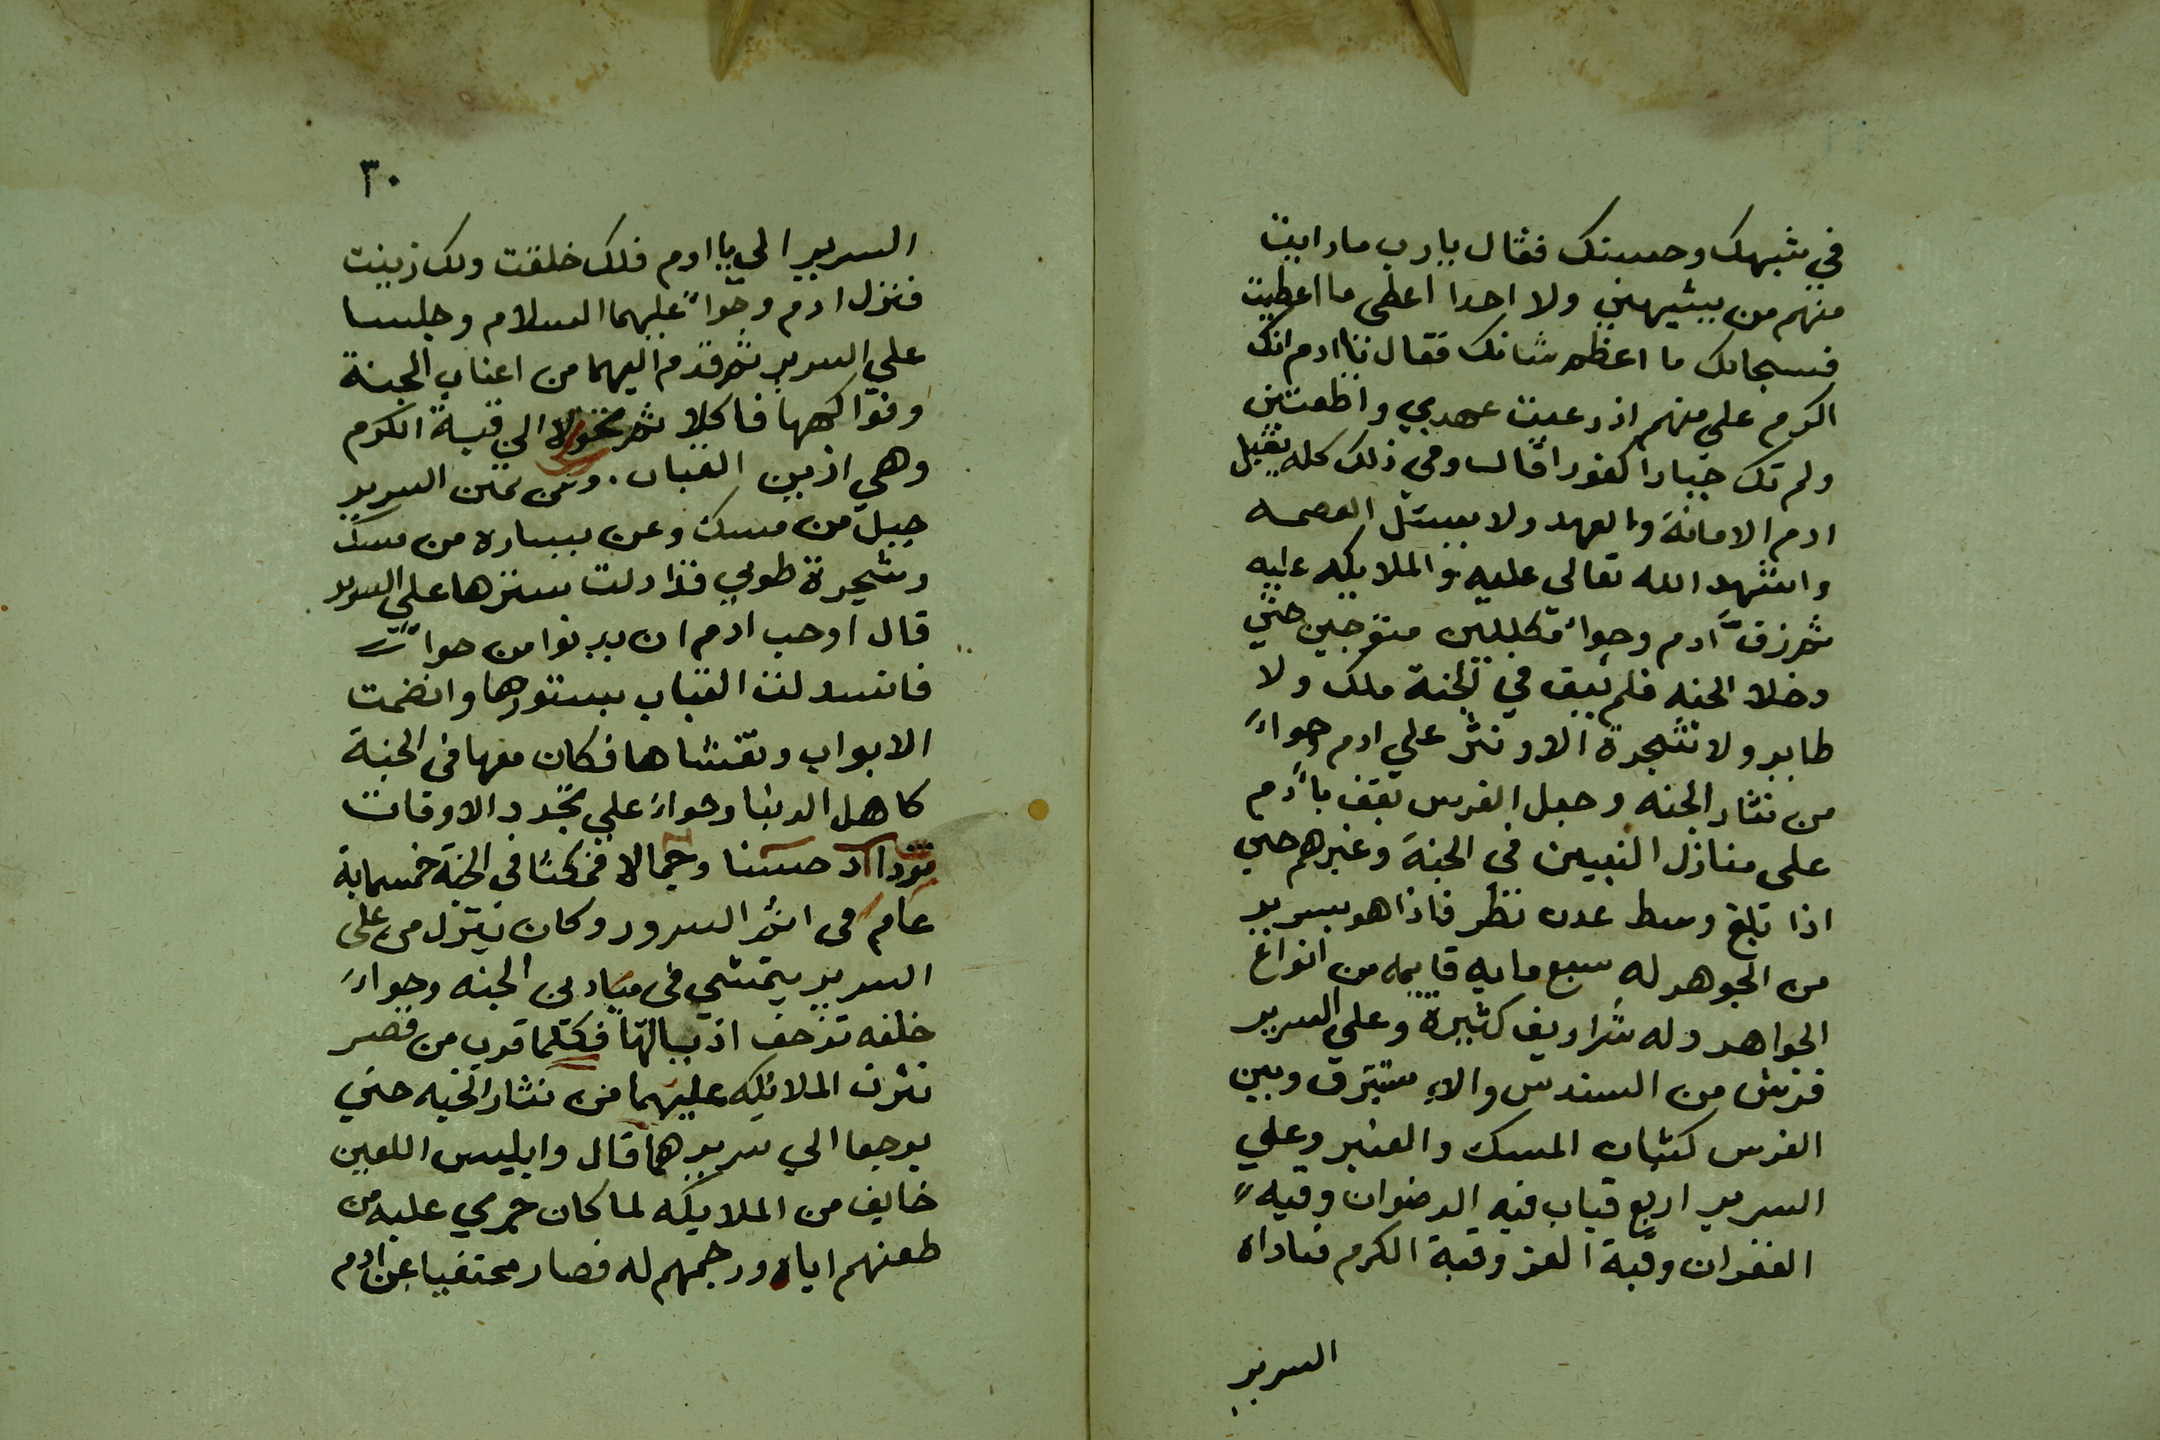 في شبهك وحسنك فقال يارب ما رايت
منهم من يشبهني ولا احدا اعطى ما اعطيت
فسبحانك ما اعظم شانك فقال يا ادم انك
اكرم علي منهم اذ رعيت عهدي واطعتني
ولم تك جبارا كفورا قال وفي ذلك كله يقبل
ادم الامانة والعهد ولا يسئل العصمه
واشهد الله تعالى عليه والملايكه عليه
ثم زف ادم وحواء مكللين متوجين حتي
دخلا الجنه فلم يبق في الجنة ملك ولا
طاير ولا شجرة الا ونثر علي ادم وحواء
من نثار الجنه وجعل الفرس يقف بآدم
على منازل النبيين في الجنة وغيرهم حتي
اذا بلغ وسط عدن نظر فاذا هو بسرير
من الجوهر له سبع مايه قايمه من انواع
الجواهر وله شراريف كثيرة وعلي السرير
فرش من السندس والاستبرق وبين
الفرس كثبان المسك والعنبر وعلي
السرير اربع قباب قبه الرضوان وقبه
الغفران وقبة العز وقبة الكرم فناداه
السرير
٣٠
السرير الي يا ادم فلك خلقت ولك زينت
فنزل ادم وحواء عليهما السلام وجلسا
علي السرير ثم قدم اليهما من اعناب الجنة
وفواكهها فاكلا ثم تحولا الى قبة الكرم
وهي ازين القباب. وعن يمين السرير
جبل من مسك وعن يساره من مسك
وشجرة طوبي قد ادلت سترها علي السرير
قال اوحب ادم ان يدنوا من حواء
فانسدلت القباب بستورها وانضمت
الابواب وتغشاها فكان معها في الجنة
كاهل الدنيا وحواء علي تجدد الاوقات
تزداد حسنا وجمالا فمكثا في الجنة خمسماية
عام في اتم السرور وكان ينزل من على
السرير يتمشي في ميادين الجنه وحواء
خلفه تزحف اذيالها فكلما قرب من قصر
نثرت الملائكه عليهما من نثار الجنه حتي
يرجعا الي سريرهما قال وابليس اللعين
خايف من الملايكه لما كان جري عليه من
طعنهم اياه ورجمهم له فصار مختفيا عن ادم